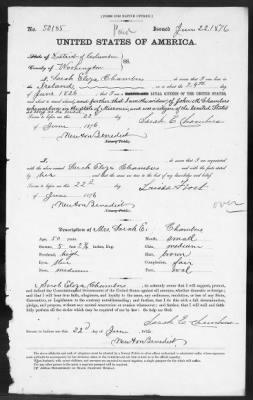 [FORM FOR NATIVE CITIZEN.]
No. 52185 Issued June 22 1876
UNITED STATES OF AMERICA.
State of District of Columbia
County of Washington } ss:
I, Sarah Eliza Chambers do swear that I was born in
Ireland on or about the 24th day
of June 1826
and further that I am the widow of John M Chambers
who was
Sworn to before me this 22d day
of June 1876 Sarah E Chambers
Newton Benedict
Notary Public.
I am acquainted
with the above named Sarah Eliza Chambers and with the facts stated by
her and that the same are true to the best of my knowledge and belief.
Sworn to before me this 22d day
of June 1876
Newton Benedict
Notary Public.
over
Description of Mrs Sarah E. Chambers
Age, 50 years Mouth, small
Stature, 5 feet 2¾ inches, Eng. Chin, medium
Forehead, high Hair, brown
Eyes, Complexion, fair
Nose, medium Face, oval
I, Sarah Eliza Chambers, do solemnly swear that I will support, protect,
and defend the Constitution and Government of the United States against all enemies, whether domestic or foreign;
and that I will bear true faith, allegiance, and loyalty to the same, any ordinance, resolution, or law of any State,
Convention, or Legislature to the contrary notwithstanding; and further, that I do this with a full determination,
pledge, and purpose, without any mental reservation or evasion whatsoever; and further, that I will well and faith-
fully perform all the duties which may be required of me by law: So help me God.
Sarah E Chambers
Sworn to before me this 22d day of June 1876
Newton Benedict
Notary Public.